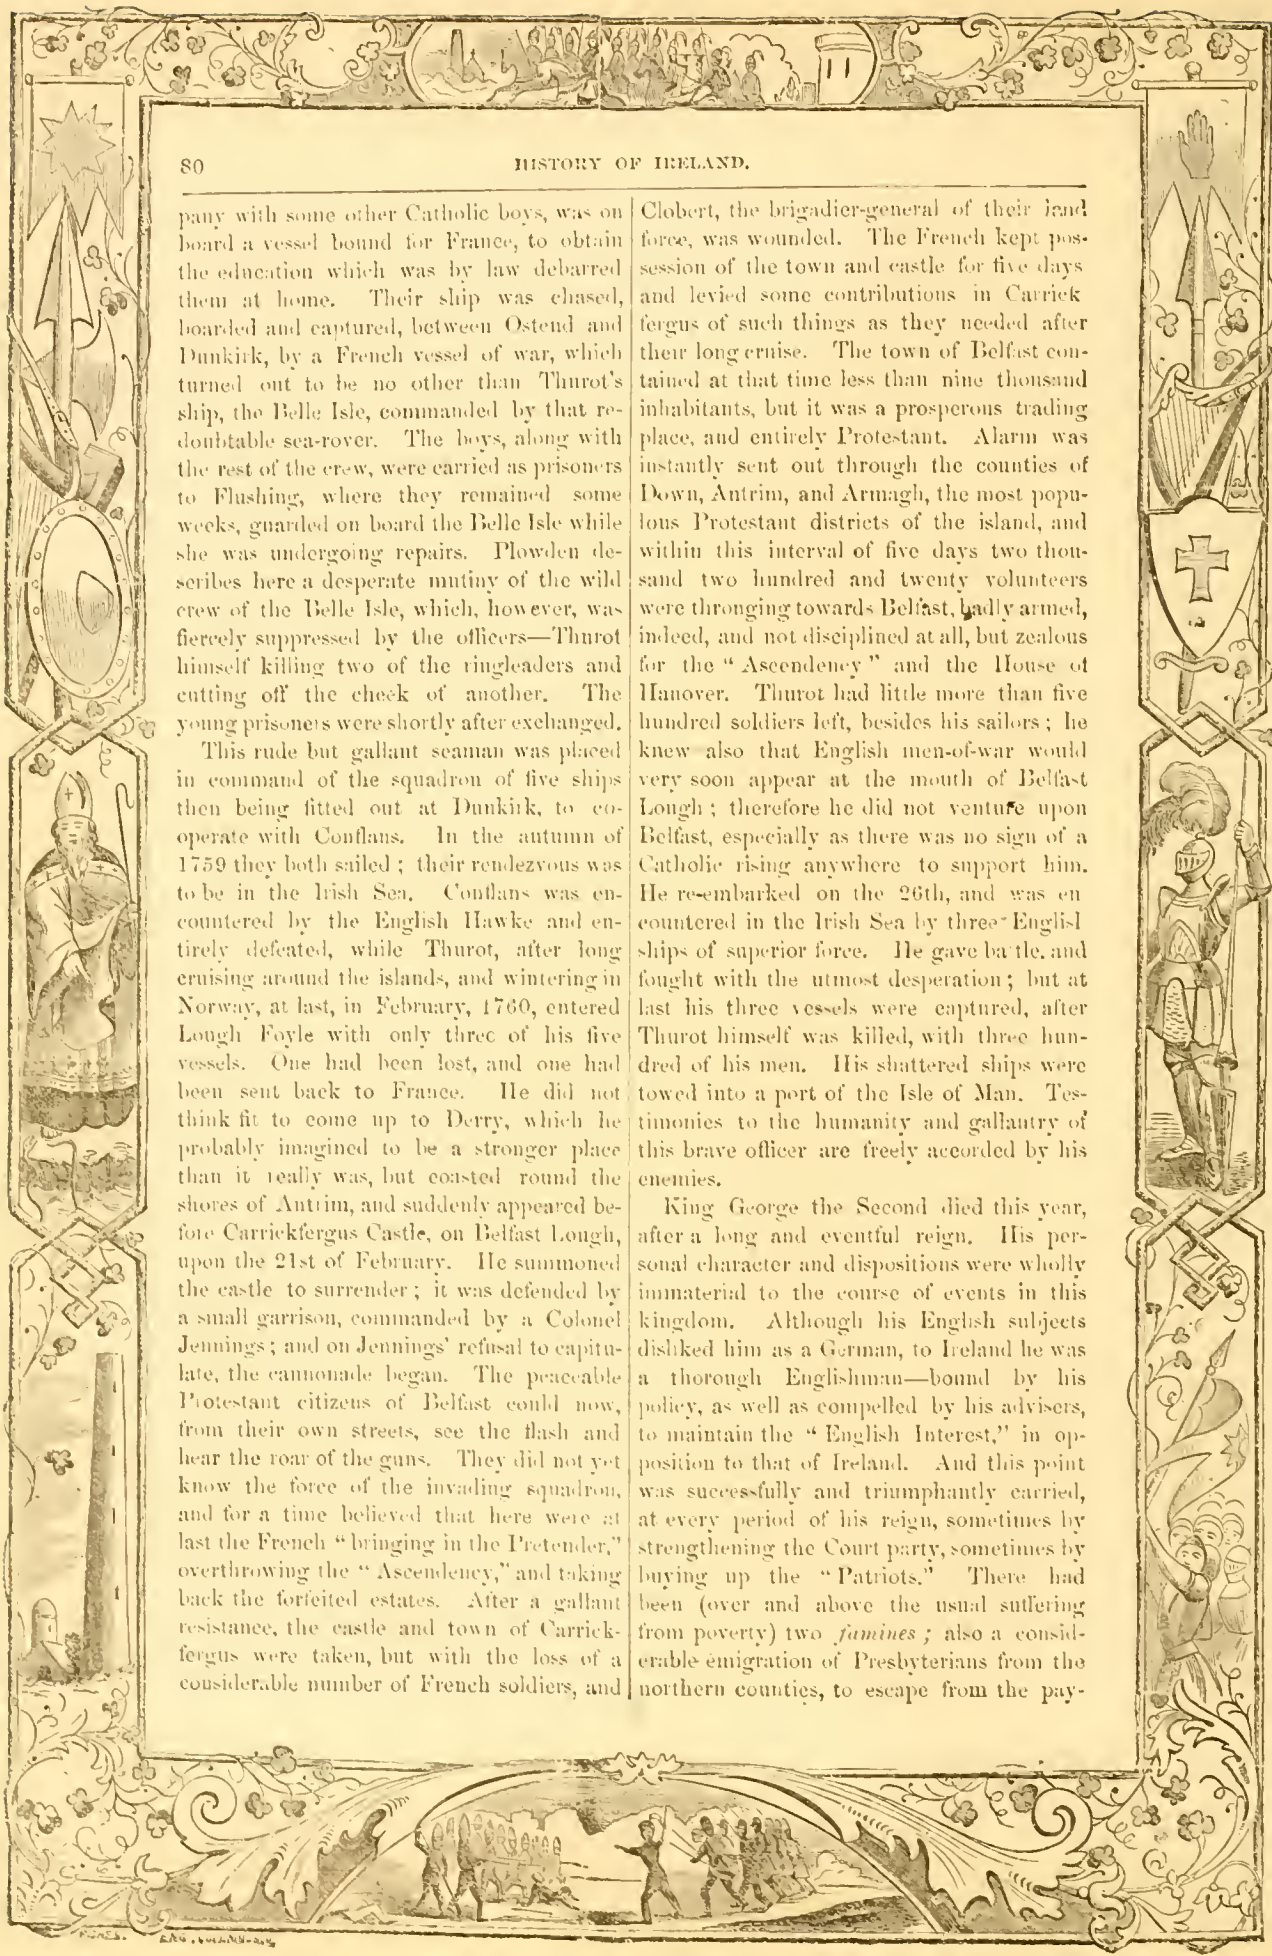 80
HISTORY OF IRELAND.
pany with some other Catholic boys, was on
board a vessel bound for France, to obtain
the education which was by law debarred
them at home. Their ship was chased,
boarded and captured, between Ostend and
Dunkirk, by a French vessel of war, which
turned out to be no other than Thurot's
ship, the Belle Isle, commanded by that re-
doubtable sea-rover. The boys, along with
the rest of the crew, were carried as prisoners
to Flushing, where they remained some
weeks, guarded on board the Belle Isle while
she was undergoing repairs. Plowden de-
scribes here a desperate mutiny of the wild
crew of the Belle Isle, which, however, was
fiercely suppressed by the officers—Thurot
himself killing two of the ringleaders and
cutting off the cheek of another. The
young prisoners were shortly after exchanged.
This rude but gallant seaman was placed
in command of the squadron of five ships
then being fitted out at Dunkirk, to co-
operate with Conflans. In the autumn of
1759 they both sailed; their rendezvous was
to be in the Irish Sea. Conflans was en-
countered by the English Hawke and en-
tirely defeated, while Thurot, after long
cruising around the islands, and wintering in
Norway, at last, in February, 1760, entered
Lough Foyle with only three of his five
vessels. One had been lost, and one had
been sent back to France. He did not
think fit to come up to Derry, which he
probably imagined to be a stronger place
than it really was, but coasted round the
shores of Antrim, and suddenly appeared be-
fore Carrickfergus Castle, on Belfast Lough,
upon the 21st of February. He summoned
the castle to surrender; it was defended by
a small garrison, commanded by a Colonel
Jennings; and on Jennings' refusal to capitu-
late, the cannonade began. The peaceable
Protestant citizens of Belfast could now,
from their own streets, see the flash and
hear the roar of the guns. They did not yet
know the force of the invading squadron,
and for a time believed that here were at
last the French "bringing in the Pretender,"
overthrowing the "Ascendency," and taking
back the forfeited estates. After a gallant
resistance, the castle and town of Carrick-
fergus were taken, but with the loss of a
considerable number of French soldiers, and
Clobert, the brigadier-general of their land
force, was wounded. The French kept pos-
session of the town and castle for five days
and levied some contributions in Carrick
fergus of such things as they needed after
their long cruise. The town of Belfast con-
tained at that time less than nine thousand
inhabitants, but it was a prosperous trading
place, and entirely Protestant. Alarm was
instantly sent out through the counties of
Down, Antrim, and Armagh, the most popu-
lous Protestant districts of the island, and
within this interval of five days two thou-
sand two hundred and twenty volunteers
were thronging towards Belfast, badly armed,
indeed, and not disciplined at all, but zealous
for the "Ascendency" and the House of
Hanover. Thurot had little more than five
hundred soldiers left, besides his sailors; he
knew also that English men-of-war would
very soon appear at the mouth of Belfast
Lough; therefore he did not venture upon
Belfast, especially as there was no sign of a
Catholic rising anywhere to support him.
He re-embarked on the 26th, and was en
countered in the Irish Sea by three English
ships of superior force. He gave battle, and
fought with the utmost desperation; but at
last his three vessels were captured, after
Thurot himself was killed, with three hun-
dred of his men. His shattered ships were
towed into a port of the Isle of Man. Tes-
timonies to the humanity and gallantry of
this brave officer are freely accorded by his
enemies.
King George the Second died this year,
after a long and eventful reign. His per-
sonal character and dispositions were wholly
immaterial to the course of events in this
kingdom. Although his English subjects
disliked him as a German, to Ireland he was
a thorough Englishman—bound by his
policy, as well as compelled by his advisers,
to maintain the "English Interest," in op-
position to that of Ireland. And this point
was successfully and triumphantly carried,
at every period of his reign, sometimes by
strengthening the Court party, sometimes by
buying up the "Patriots." There had
been (over and above the usual suffering
from poverty) two famines; also a consid-
erable emigration of Presbyterians from the
northern counties, to escape from the pay-